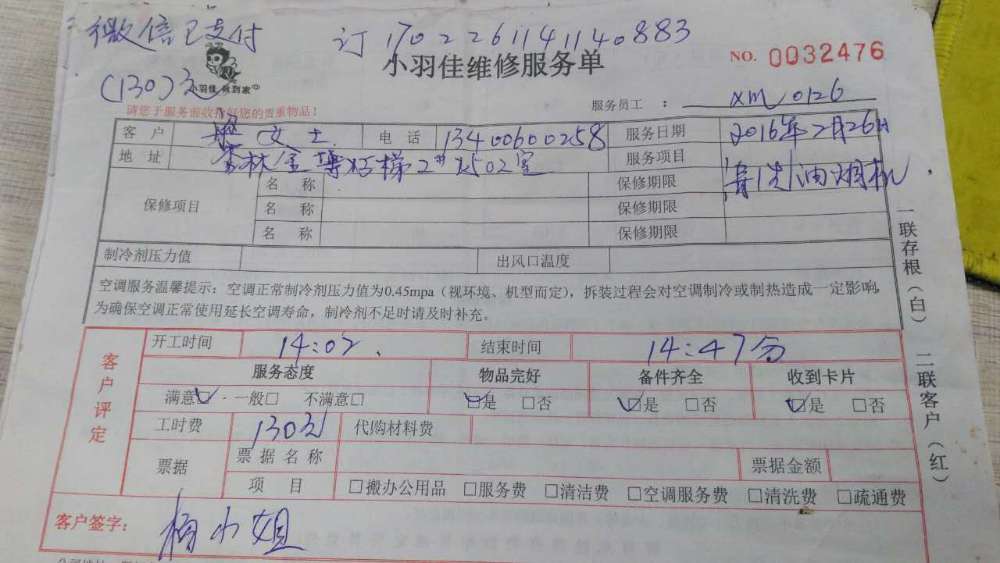 微信已支付 订 1702261141140883
(130)元 小羽佳 做到家
小羽佳维修服务单 NO. 0032476
请您于服务前收拾好您的贵重物品!
服务员工 : XM0126
客户 女士 电话 13400600258 服务日期 2016年2月26日
地址 2# 502室 服务项目 清洗油烟机
保修项目 名称 保修期限
名称 保修期限
名称 保修期限
制冷剂压力值 出风口温度
空调服务温馨提示:空调正常制冷剂压力值为0.45mpa(视环境、机型而定),拆装过程会对空调制冷或制热造成一定影响,
为确保空调正常使用延长空调寿命,制冷剂不足时请及时补充。
客户评定
开工时间 14:02 结束时间 14:47分
服务态度 物品完好 备件齐全 收到卡片
满意☑ 一般□ 不满意□ ☑是 □否 ☑是 □否 ☑是 □否
工时费 130元 代购材料费
票据 票据名称 票据金额
项目 □搬办公用品 □服务费 □清洁费 □空调服务费 □清洗费 □疏通费
客户签字: 杨小姐
一联存根(白) 二联客户(红)